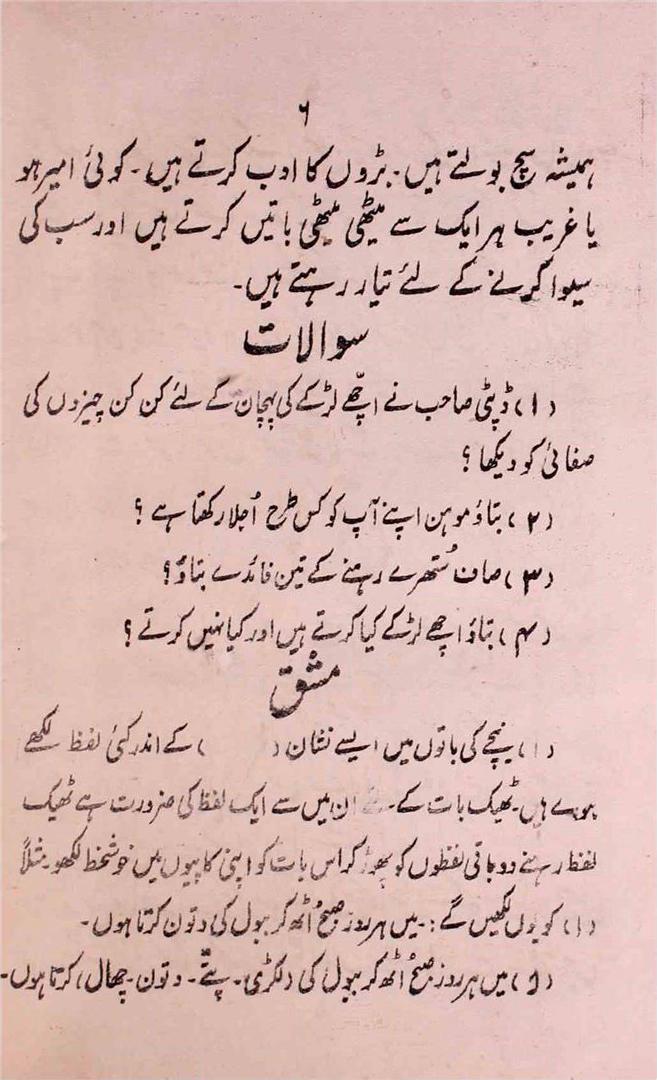 ۶
ہمیشہ سچ بولتے ہیں۔ بڑوں کا ادب کرتے ہیں۔ کوئی امیر ہو
یا غریب ہر ایک سے میٹھی میٹھی باتیں کرتے ہیں اور سب کی
سیوا کرنے کے لئے تیار رہتے ہیں۔
سوالات
(۱) ڈپٹی صاحب نے اچھّے لڑکے کی پہچان کے لئے کن کن چیزوں کی
صفائی کو دیکھا ؟
(۲) بتاؤ موہن اپنے آپ کو کس طرح اُجلا رکھتا ہے ؟
(۳) صاف سُتھرے رہنے کے تین فائدے بتاؤ ؟
(۴) بتاؤ اچھے لڑکے کیا کرتے ہیں اور کیا نہیں کرتے ؟
مشق
(۱) نیچے کی باتوں میں ایسے نشان ( ) کے اندر کئی لفظ لکھے
ہوئے ہیں۔ ٹھیک بات کے لئے ان میں سے ایک لفظ کی ضرورت ہے ٹھیک
لفظ رہنے دو باقی لفظوں کو چھوڑ کر اس بات کو اپنی کاپیوں میں خوشخط لکھو۔ مثلاً
(۱) کو یوں لکھیں گے :۔ میں ہر روز صبح اُٹھ کر ببول کی دتون کرتا ہوں۔
(۱) میں ہر روز صبح اُٹھ کر ببول کی (لکڑی۔ پتّے۔ دتون۔ چھال) کرتا ہوں۔